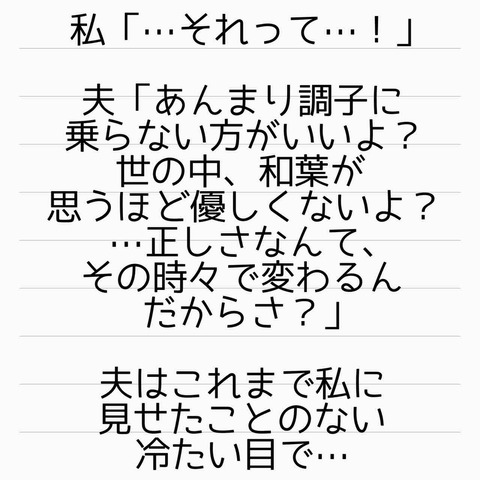 私「…それって…！」
夫「あんまり調子に
乗らない方がいいよ？
世の中、和葉が
思うほど優しくないよ？
…正しさなんて、
その時々で変わるん
だからさ？」
夫はこれまで私に
見せたことのない
冷たい目で…